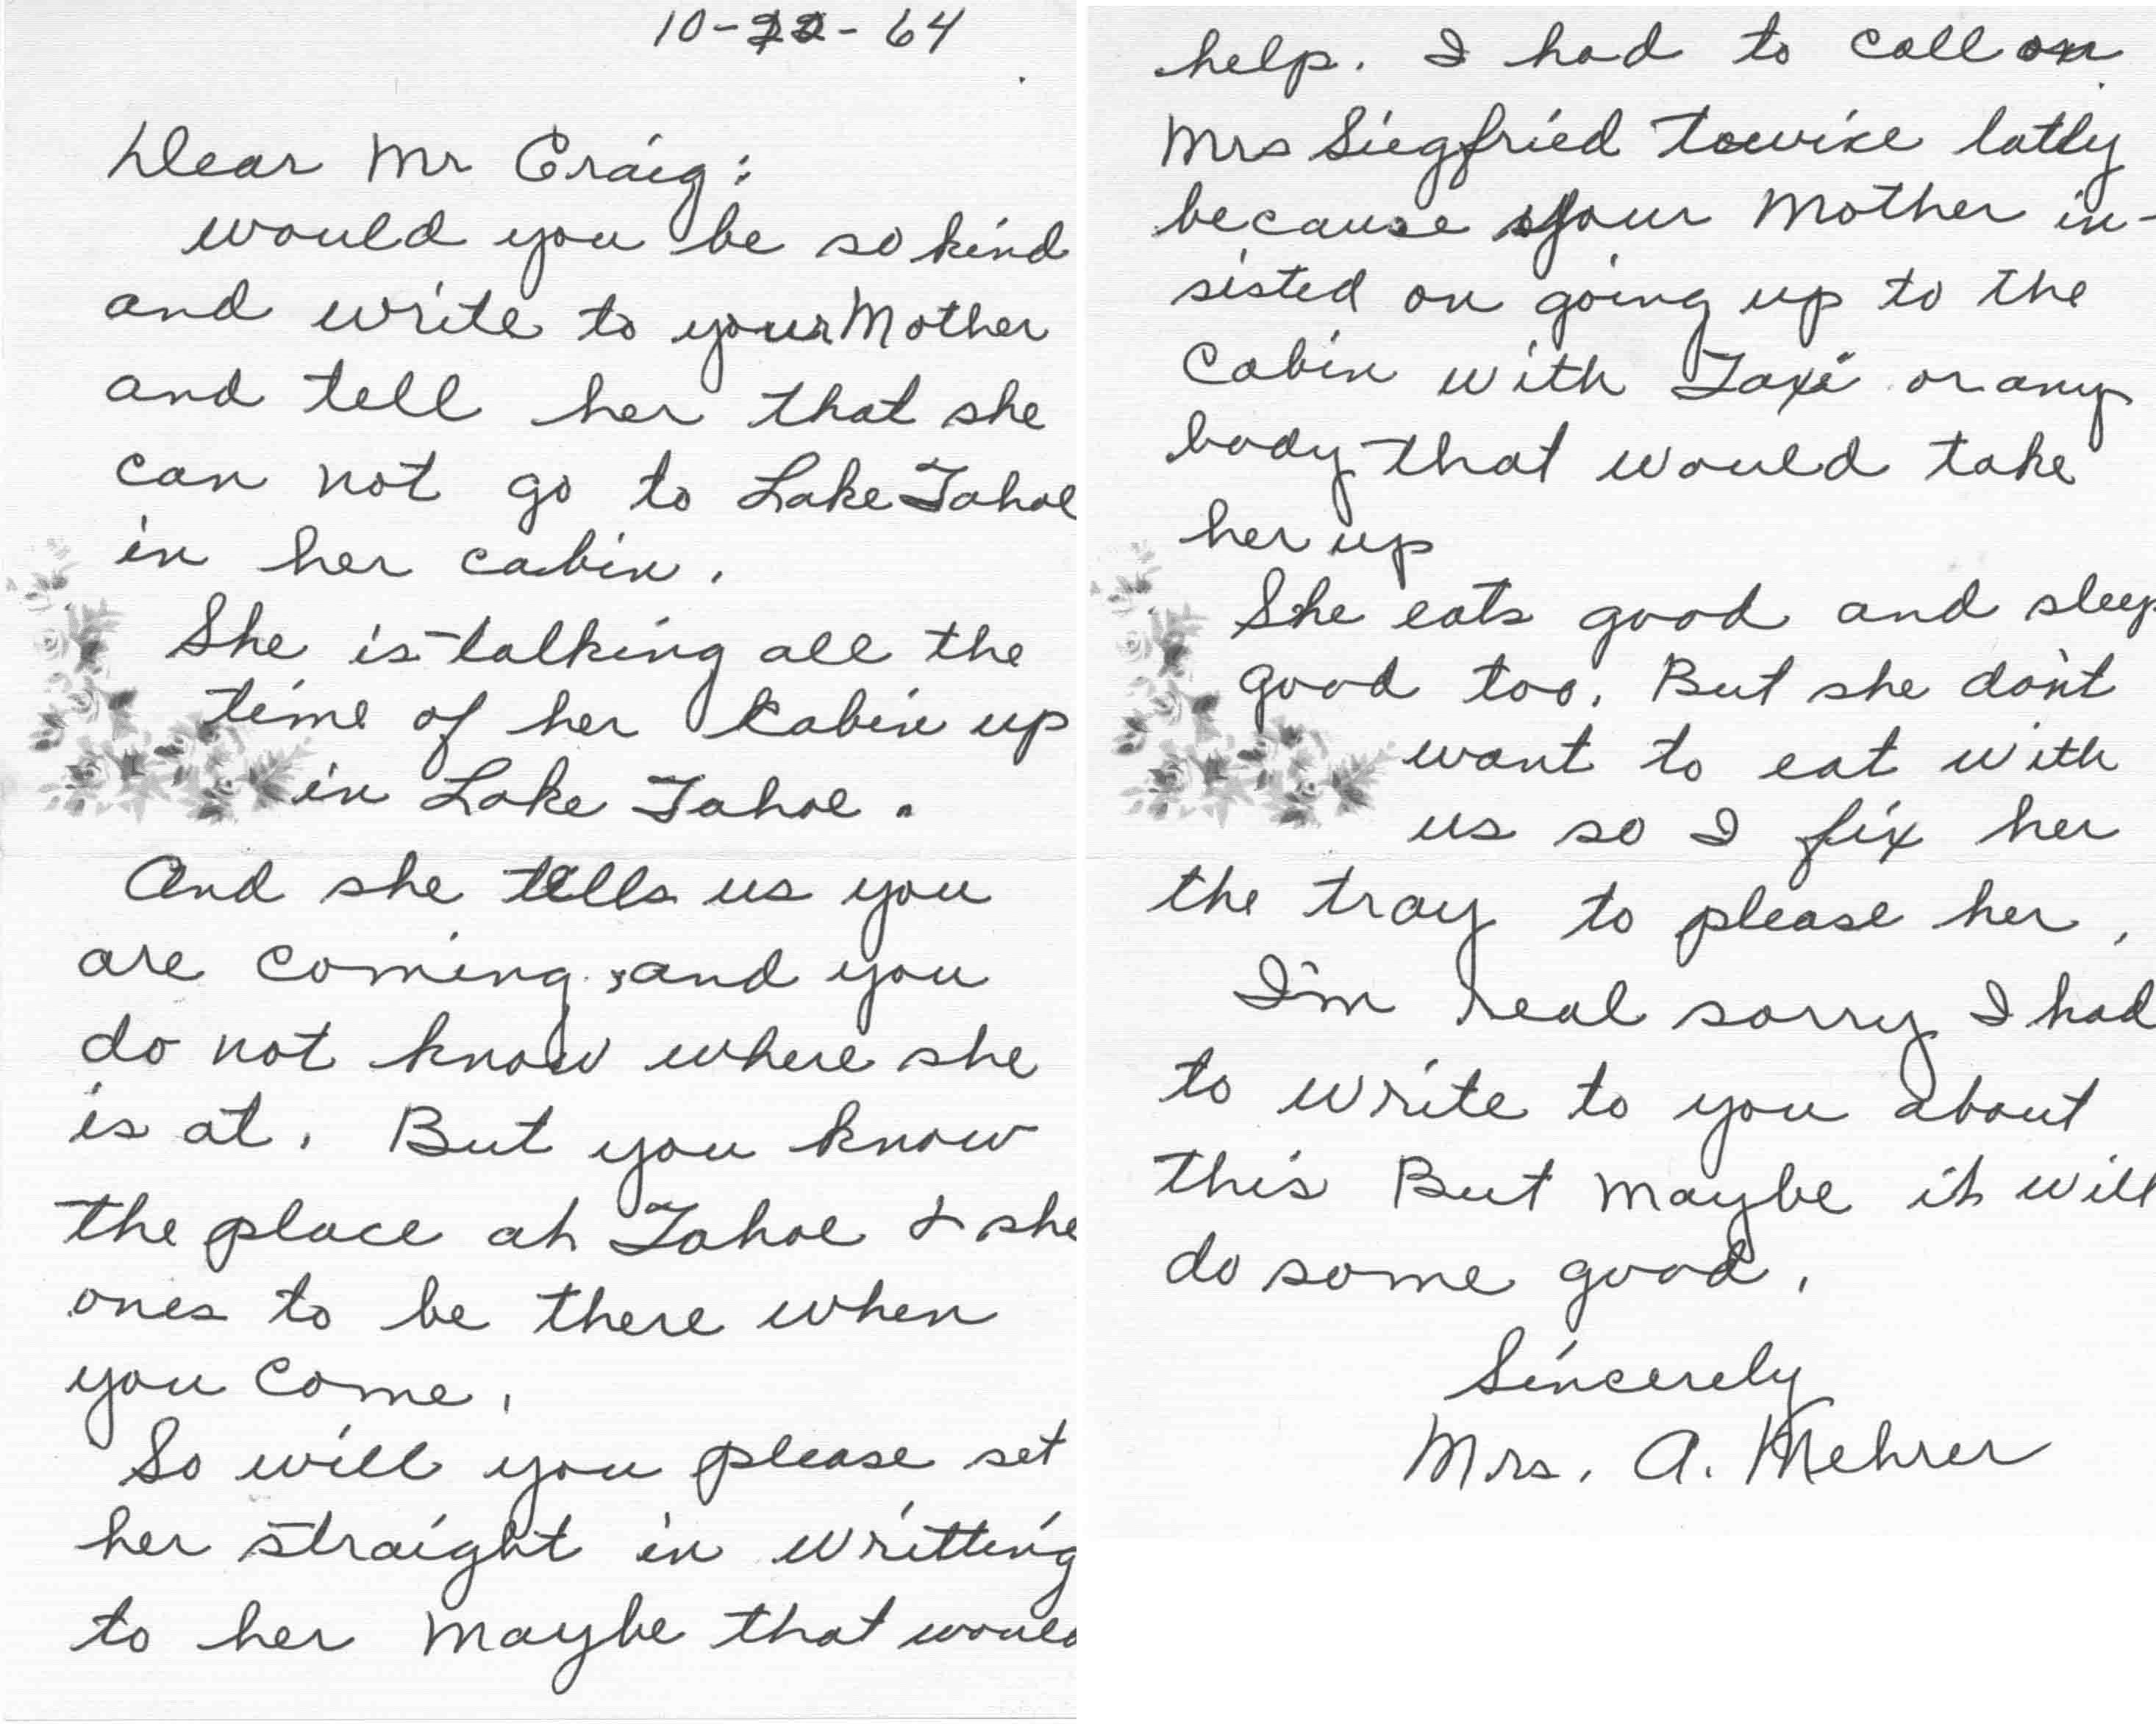 10-22-64
Dear Mr Craig:
would you be so kind
and write to your Mother
and tell her that she
can not go to Lake Tahoe
in her cabin.
She is talking all the
time of her Cabin up
in Lake Tahoe.
And she tells us you
are coming, and you
do not know where she
is at. But you know
the place at Tahoe & she
ones to be there when
you come.
So will you please set
her straight in writting
to her maybe that would
help. I had to call on
Mrs Siegfried towice latly
because your Mother in-
sisted on going up to the
Cabin with Taxi or any
body that would take
her up
She eats good and sleep
good too. But she don't
want to eat with
us so I fix her
the tray to please her.
I'm real sorry I had
to write to you about
this But maybe it will
do some good.
Sincerely
Mrs. A. Mehrer